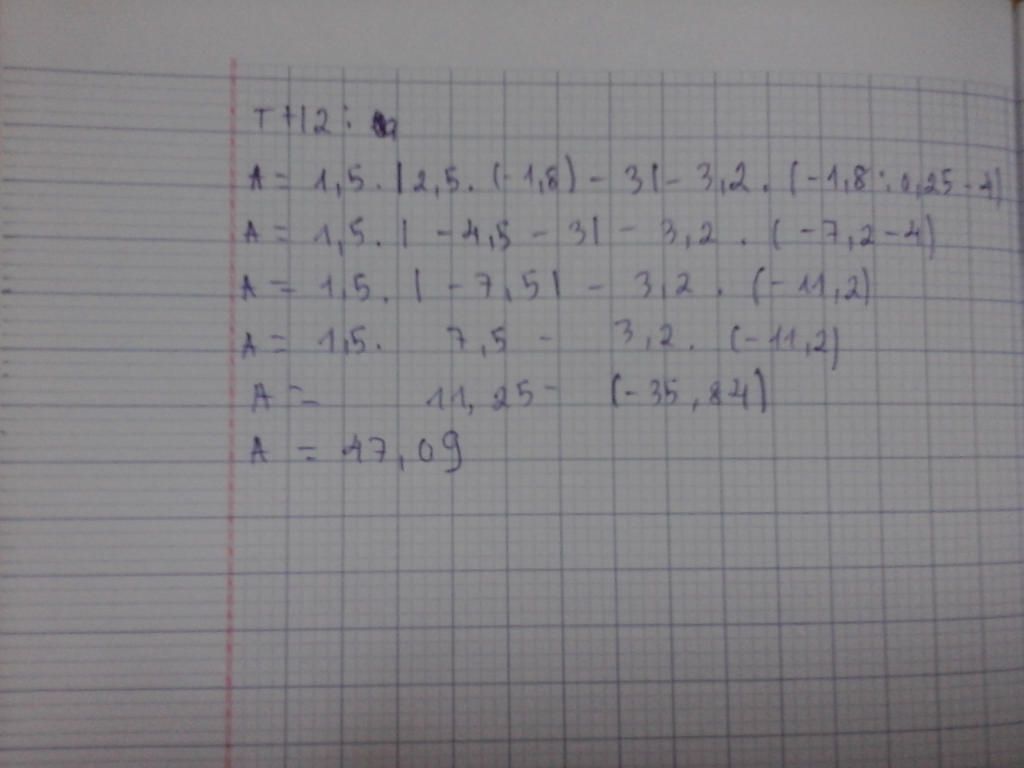 TH2:
A = 1,5 . |2,5 . (-1,8) - 3| - 3,2 . (-1,8 : 0,25 - 4)
A = 1,5 . | -4,5 - 3| - 3,2 . (-7,2 - 4)
A = 1,5 . | -7,5| - 3,2 . (-11,2)
A = 1,5 . 7,5 - 3,2 . (-11,2)
A = 11,25 - (-35,84)
A = 47,09